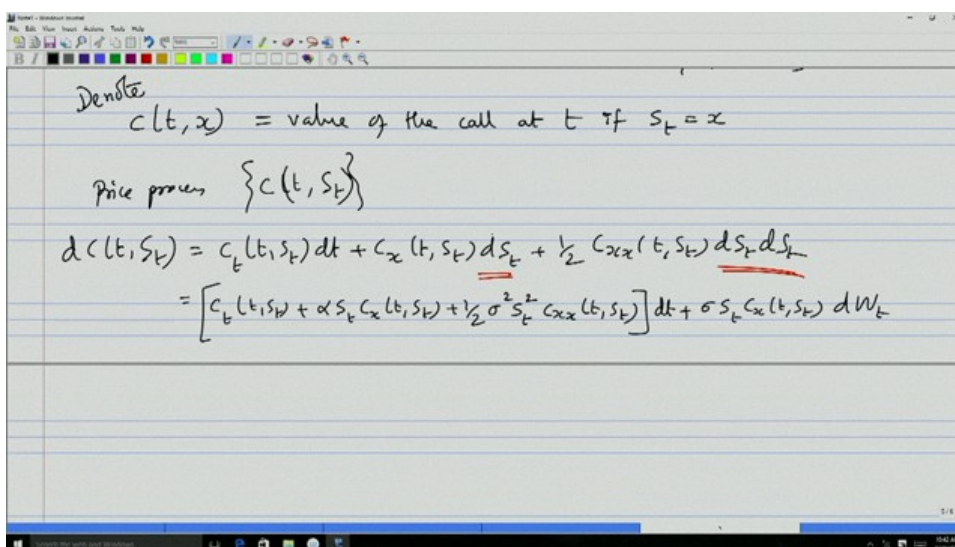 Note1 - Windows Journal
File Edit View Insert Actions Tools Help
B I
Denote
c(t,x) = value of the call at t if S_t = x
Price process {c(t, S_t)}
d c(t, S_t) = c_t(t, S_t) dt + c_x(t, S_t) dS_t + 1/2 c_xx(t, S_t) dS_t dS_t
= [c_t(t, S_t) + α S_t c_x(t, S_t) + 1/2 σ² S_t² c_xx(t, S_t)] dt + σ S_t c_x(t, S_t) dW_t
Search the web and Windows